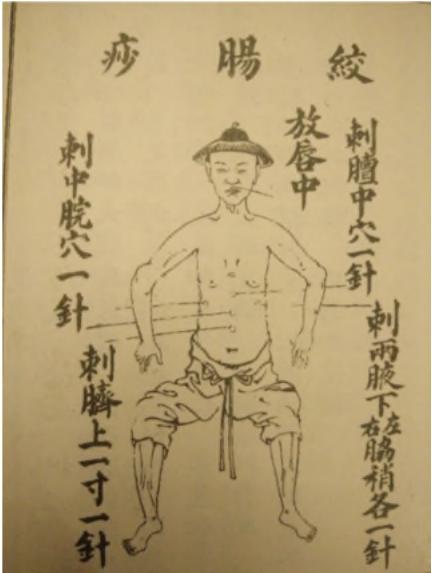 絞腸痧
放唇中
刺膻中穴一針
刺兩腋下左右脇稍各一針
刺中脘穴一針
刺臍上一寸一針